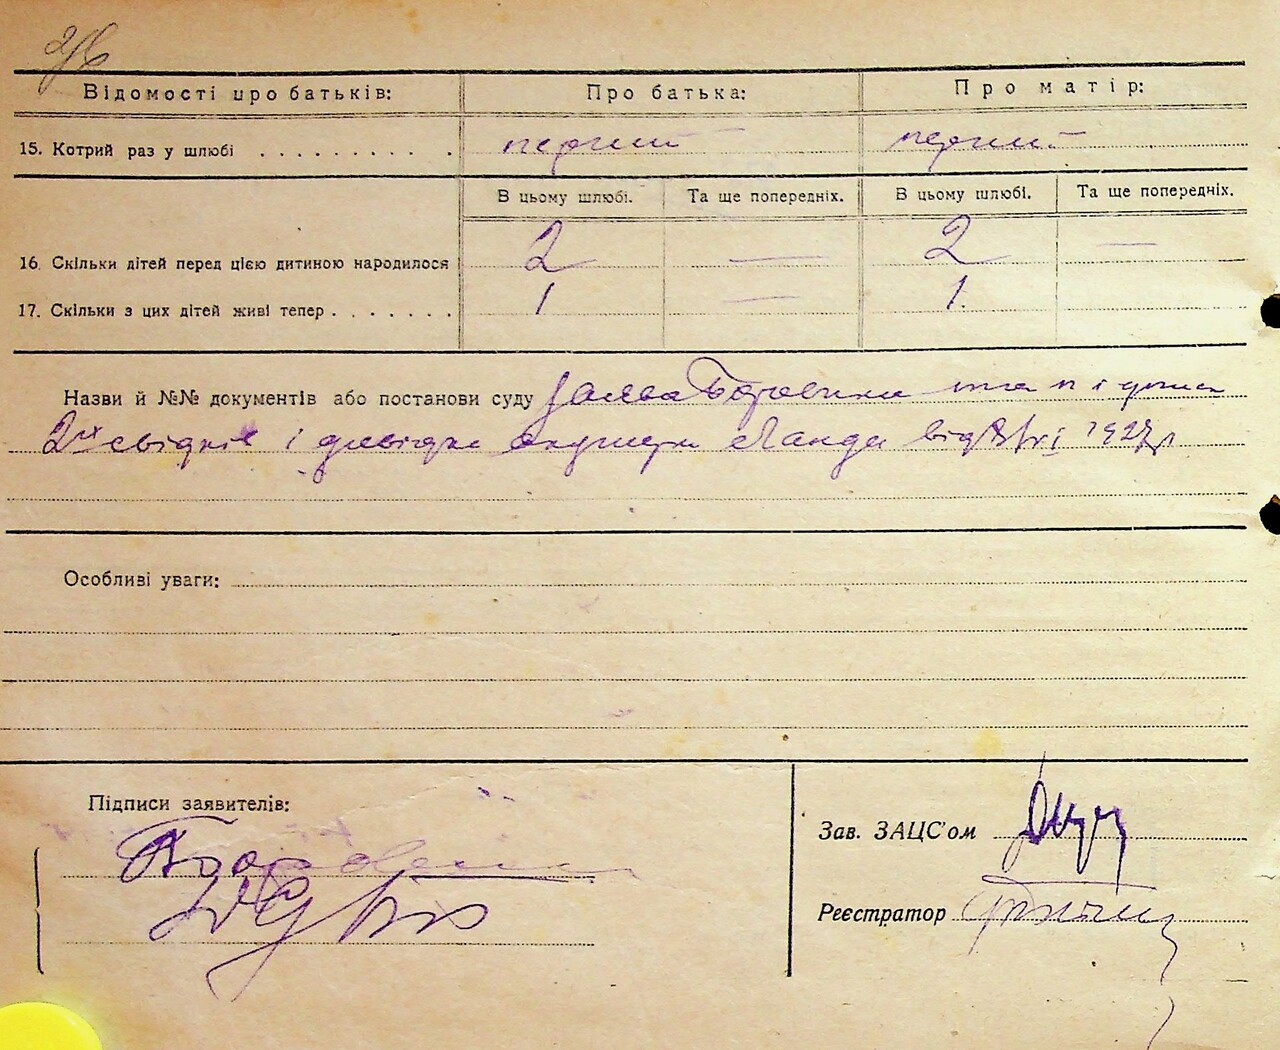 Відомості про батьків: Про батька: Про матір:
15. Котрий раз у шлюбі . . . . . . . . . . перший перший
В цьому шлюбі. Та ще попередніх. В цьому шлюбі. Та ще попередніх.
16. Скільки дітей перед цією дитиною народилося 2 — 2 —
17. Скільки з цих дітей живі тепер . . . . . . . 1 — 1.
Назви й №№ документів або постанови суду заява та підписи
2х свідків і довідка акушерки від 1927 р
Особливі уваги:
Підписи заявителів:
Зав. ЗАЦС'ом
Реєстратор